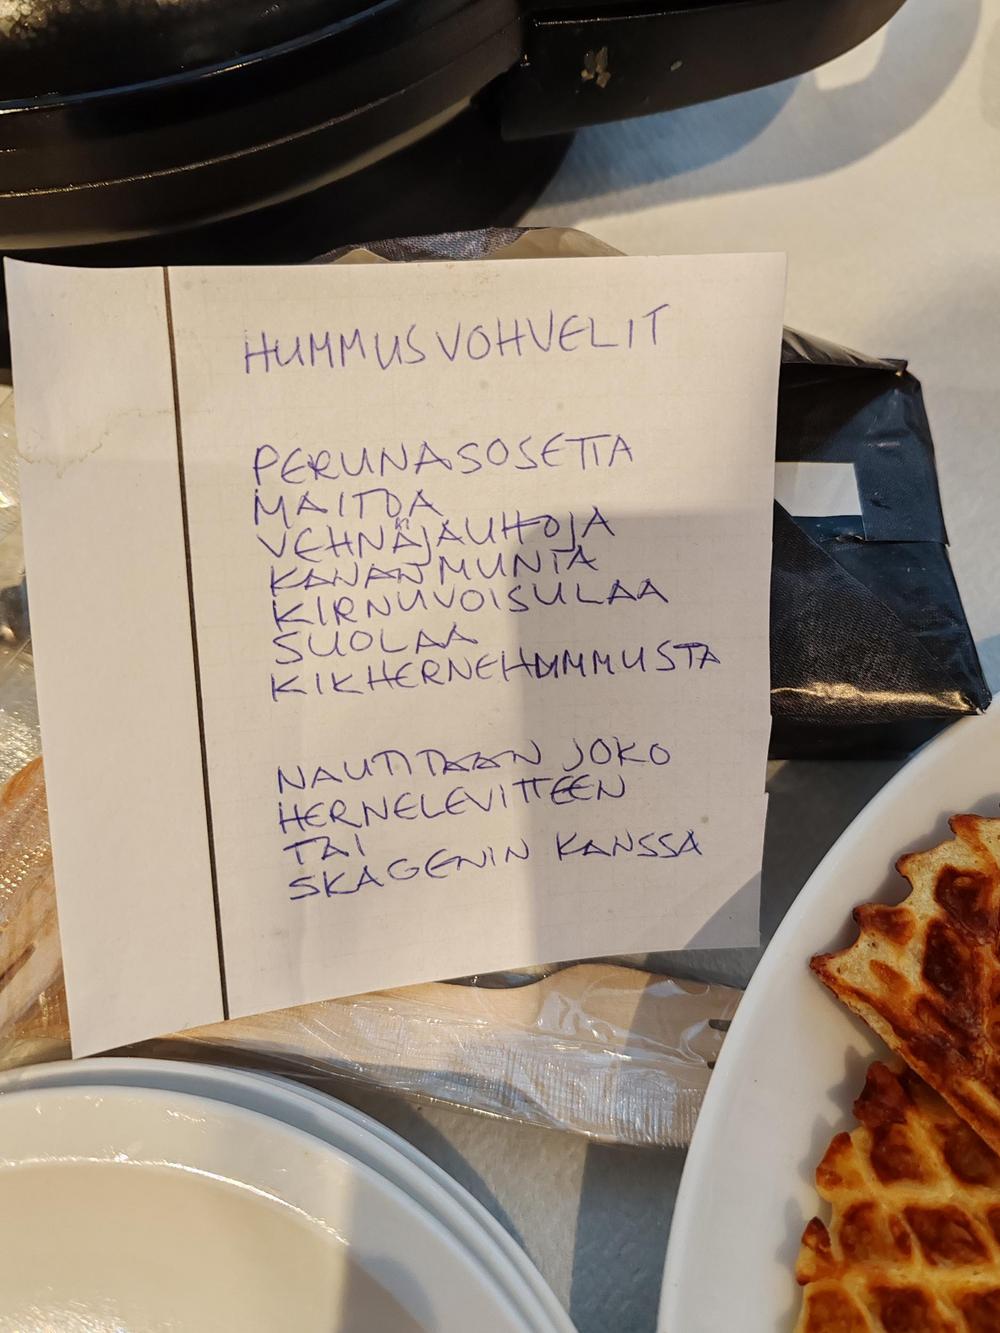 HUMMUSVOHVELIT
PERUNASOSETTA
MAITOA
VEHNÄJAUHOJA
KANANMUNIA
KIRNUVOISULAA
SUOLAA
KIKHERNEHUMMUSTA
NAUTITAAN JOKO
HERNELEVITTEEN
TAI
SKAGENIN KANSSA